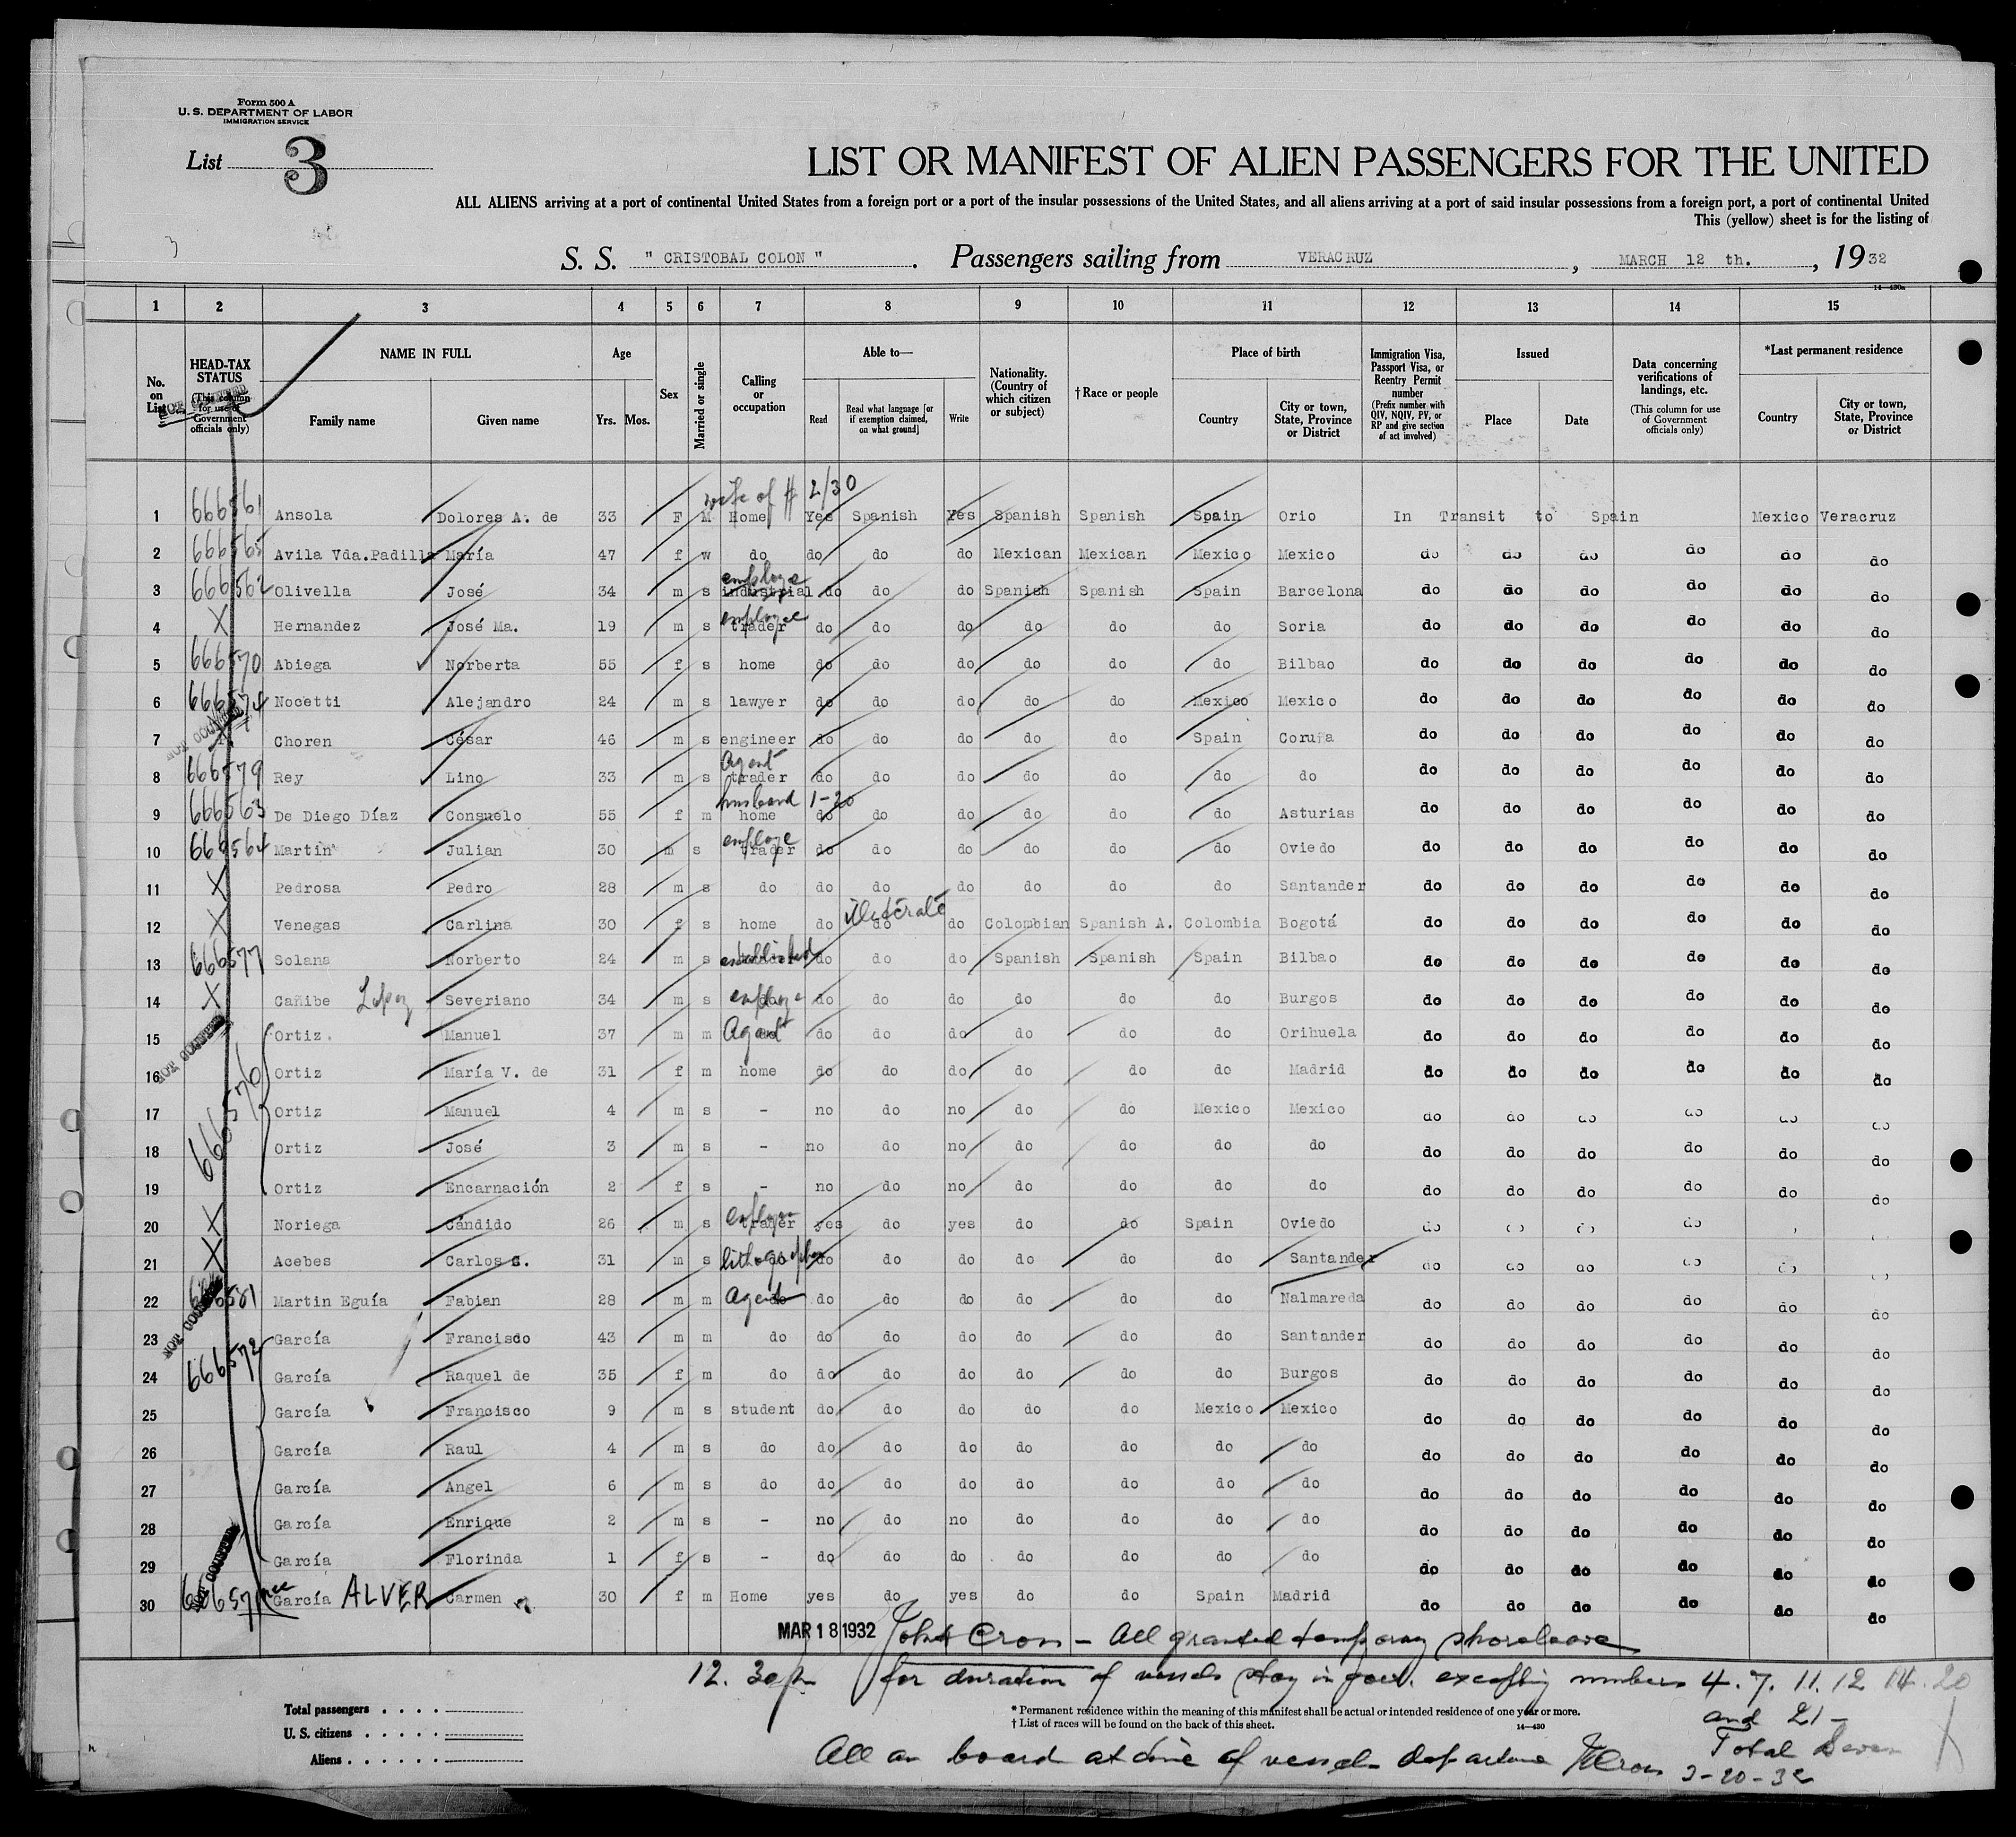 Form 500 A
U. S. DEPARTMENT OF LABOR
IMMIGRATION SERVICE
List 3
LIST OR MANIFEST OF ALIEN PASSENGERS FOR THE UNITED
ALL ALIENS arriving at a port of continental United States from a foreign port or a port of the insular possessions of the United States, and all aliens arriving at a port of said insular possessions from a foreign port, a port of continental United
This (yellow) sheet is for the listing of
3
S. S. " CRISTOBAL COLON " . Passengers sailing from VERACRUZ , MARCH 12 th. , 19 32
14-430a
1 2 3 4 5 6 7 8 9 10 11 12 13 14 15
No. on List
HEAD-TAX STATUS (This column for use of Government officials only)
NOT COUNTED
NAME IN FULL Family name Given name
Age Yrs. Mos.
Sex
Married or single
Calling or occupation
Able to— Read Read what language [or if exemption claimed, on what ground] Write
Nationality. (Country of which citizen or subject)
†Race or people
Place of birth Country City or town, State, Province or District
Immigration Visa, Passport Visa, or Reentry Permit number (Prefix number with QIV, NQIV, PV, or RP and give section of act involved)
Issued Place Date
Data concerning verifications of landings, etc. (This column for use of Government officials only)
*Last permanent residence Country City or town, State, Province or District
wife of # 2/30
1 666561 Ansola Dolores A. de 33 F M Home Yes Spanish Yes Spanish Spanish Spain Orio In Transit to Spain Mexico Veracruz
2 666565 Avila Vda.Padilla María 47 f w do do do do Mexican Mexican Mexico Mexico do do do do do do
employe
3 666562 Olivella José 34 m s industrial do do do Spanish Spanish Spain Barcelona do do do do do do
employee
4 X Hernandez José Ma. 19 m s trader do do do do do do Soria do do do do do do
5 666570 Abiega Norberta 55 f s home do do do do do do Bilbao do do do do do do
6 666574 Nocetti Alejandro 24 m s lawyer do do do do do Mexico Mexico do do do do do do
NOT COUNTED
7 X Choren César 46 m s engineer do do do do do Spain Coruña do do do do do do
Agent
8 666579 Rey Lino 33 m s trader do do do do do do do do do do do do do
husband 1-20
9 666563 De Diego Díaz Consuelo 55 f m home do do do do do do Asturias do do do do do do
employe
10 666564 Martin Julian 30 m s trader do do do do do do Oviedo do do do do do do
11 X Pedrosa Pedro 28 m s do do do do do do do Santander do do do do do do
illiterate
12 X Venegas Carlina 30 f s home do do do Colombian Spanish A. Colombia Bogotá do do do do do do
13 666577 Solana Norberto 24 m s established do do do Spanish Spanish Spain Bilbao do do do do do do
14 X Cañibe Lopez Severiano 34 m s employe do do do do do do Burgos do do do do do do
NOT COUNTED
15 Ortiz. Manuel 37 m m Agent do do do do do do Orihuela do do do do do do
16 666576 Ortiz María V. de 31 f m home do do do do do do Madrid do do do do do do
17 Ortiz Manuel 4 m s - no do no do do Mexico Mexico do do do do do do
18 Ortiz José 3 m s - no do no do do do do do do do do do do
19 Ortiz Encarnación 2 f s - no do no do do do do do do do do do do
20 X Noriega Cándido 26 m s trader yes do yes do do Spain Oviedo do do
21 X Acebes Carlos C. 31 m s lithographer do do do do do do Santander do do do do do
22 666581 Martin Eguía Fabian 28 m m Agent do do do do do do Nalmareda do do do do do do
NOT COUNTED
23 García Francisco 43 m m do do do do do do do Santander do do do do do do
24 666572 García Raquel de 35 f m do do do do do do do Burgos do do do do do do
25 García Francisco 9 m s student do do do do do Mexico Mexico do do do do do do
26 García Raul 4 m s do do do do do do do do do do do do do do
27 García Angel 6 m s do do do do do do do do do do do do do do
28 García Enrique 2 m s - no do no do do do do do do do do do do
NOT COUNTED
29 García Florinda 1 f s - do do do do do do do do do do do do do
30 666571 nee García ALVER Carmen 30 f m Home yes do yes do do Spain Madrid do do do do do do
MAR 18 1932 John Cron - All granted temporary shoreleave
12.30 pm for duration of vessels stay in port. excepting numbers 4. 7. 11. 12 14. 20
and 21 -
Total passengers
U. S. citizens
Aliens
* Permanent residence within the meaning of this manifest shall be actual or intended residence of one year or more.
† List of races will be found on the back of this sheet. 14-430
Total Seven
All on board at time of vessels departure JCron 3-20-32